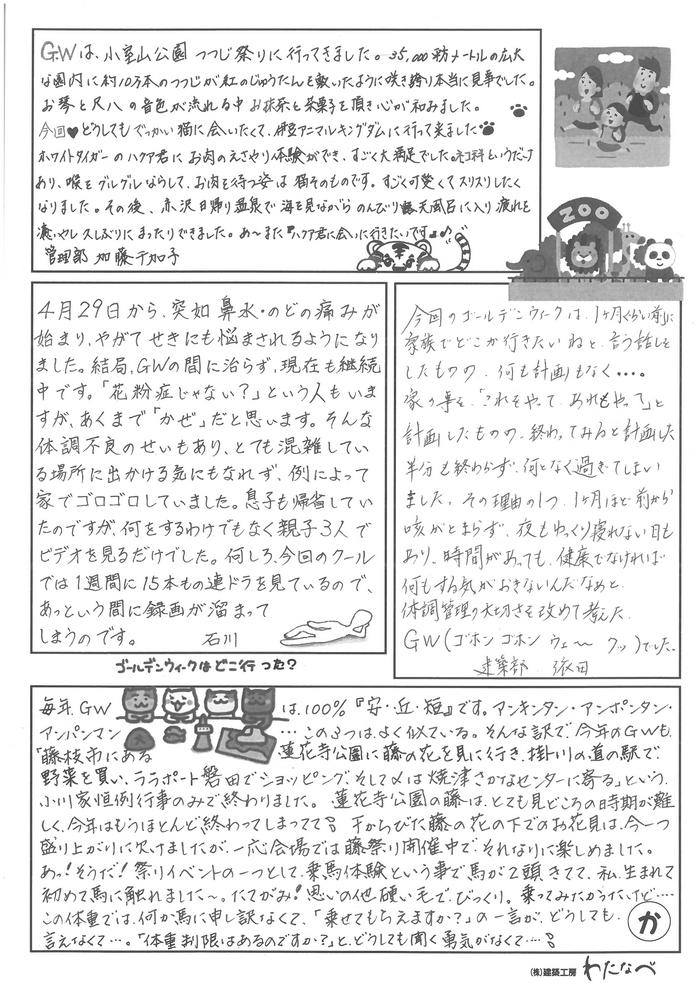 GWは、小室山公園 つつじ祭りに行ってきました。35,000平方メートルの広大
な園内に約10万本のつつじが紅のじゅうたんを敷いたように咲き誇り本当に見事でした。
お琴と尺八の音色が流れる中 お抹茶と茶菓子を頂き心が和みました。
今回♥どうしてもでっかい猫に会いたくて、伊豆アニマルキングダムに行って来ました
ホワイトタイガーのハクア君にお肉のえさやり体験ができ、すごく大満足でした。ネコ科というだけ
あり、喉をグルグルならして、お肉を待つ姿は猫そのものです。すごく可愛くてスリスリしたく
なりました。その後、赤沢日帰り温泉で海を見ながらのんびり露天風呂に入り疲れを
癒やし久しぶりにまったりできました。あ〜また『ハクア君に会いに行きたいです♪♪
管理部 加藤千加子
ZOO
4月29日から、突如鼻水・のどの痛みが
始まり、やがてせきにも悩まされるようになり
ました。結局、GWの間に治らず、現在も継続
中です。「花粉症じゃない?」という人もいま
すが、あくまで「かぜ」だと思います。そんな
体調不良のせいもあり、とても混雑してい
る場所に出かける気にもなれず、例によって
家でゴロゴロしていました。息子も帰省してい
たのですが、何をするわけでもなく親子3人で
ビデオを見るだけでした。何しろ、今回のクール
では1週間に15本もの連ドラを見ているので、
あっという間に録画が溜まって
しまうのです。 石川
今回のゴールデンウィークは、1ヶ月くらい前に
家族でどこか行きたいねと、言う話しを
したものの、何も計画もなく・・・。
家の事を、「これをやって、あれもやって」と
計画したものの、終わってみると計画した
半分も終わらず、何となく過ぎてしまい
ました。その理由の1つ、1ヶ月ほど前から
咳がとまらず、夜もゆっくり寝れない日も
あり、時間があっても、健康でなければ
何もする気がおきないんだなあと、
体調管理の大切さを改めて考えた、
GW(ゴホン ゴホン ウェ〜 クッ)でした。
建築部 依田
ゴールデンウィークはどこ行った?
毎年、GWは、100%『安・近・短』です。アンキンタン・アンポンタン・
アンパンマン…この3つは、よく似ている。そんな訳で、今年のGWも、
「藤枝市にある蓮花寺公園に藤の花を見に行き、掛川の道の駅で、
野菜を買い、ララポート磐田でショッピング、そして〆は焼津さかなセンターに寄る」という、
小川家恒例行事のみで終わりました。蓮花寺公園の藤は、とても見どころの時期が難
しく、今年はもうほとんど終わってしまってて 干からびた藤の花の下でのお花見は、今一つ
盛り上がりに欠けましたが、一応会場では藤祭り開催中で、それなりに楽しめました。
あっ!そうだ!祭りイベントの一つとして、乗馬体験という事で馬が2頭きてて、私、生まれて
初めて馬に触れました〜。たてがみ!思いの他硬い毛で、びっくり。乗ってみたかったけど…
この体重では、何か馬に申し訳なくて、「乗せてもらえますか?」の一言が、どうしても、
言えなくて…。「体重制限はあるのですか?」と、どうしても聞く勇気がなくて…
か
(株)建築工房 わたなべ